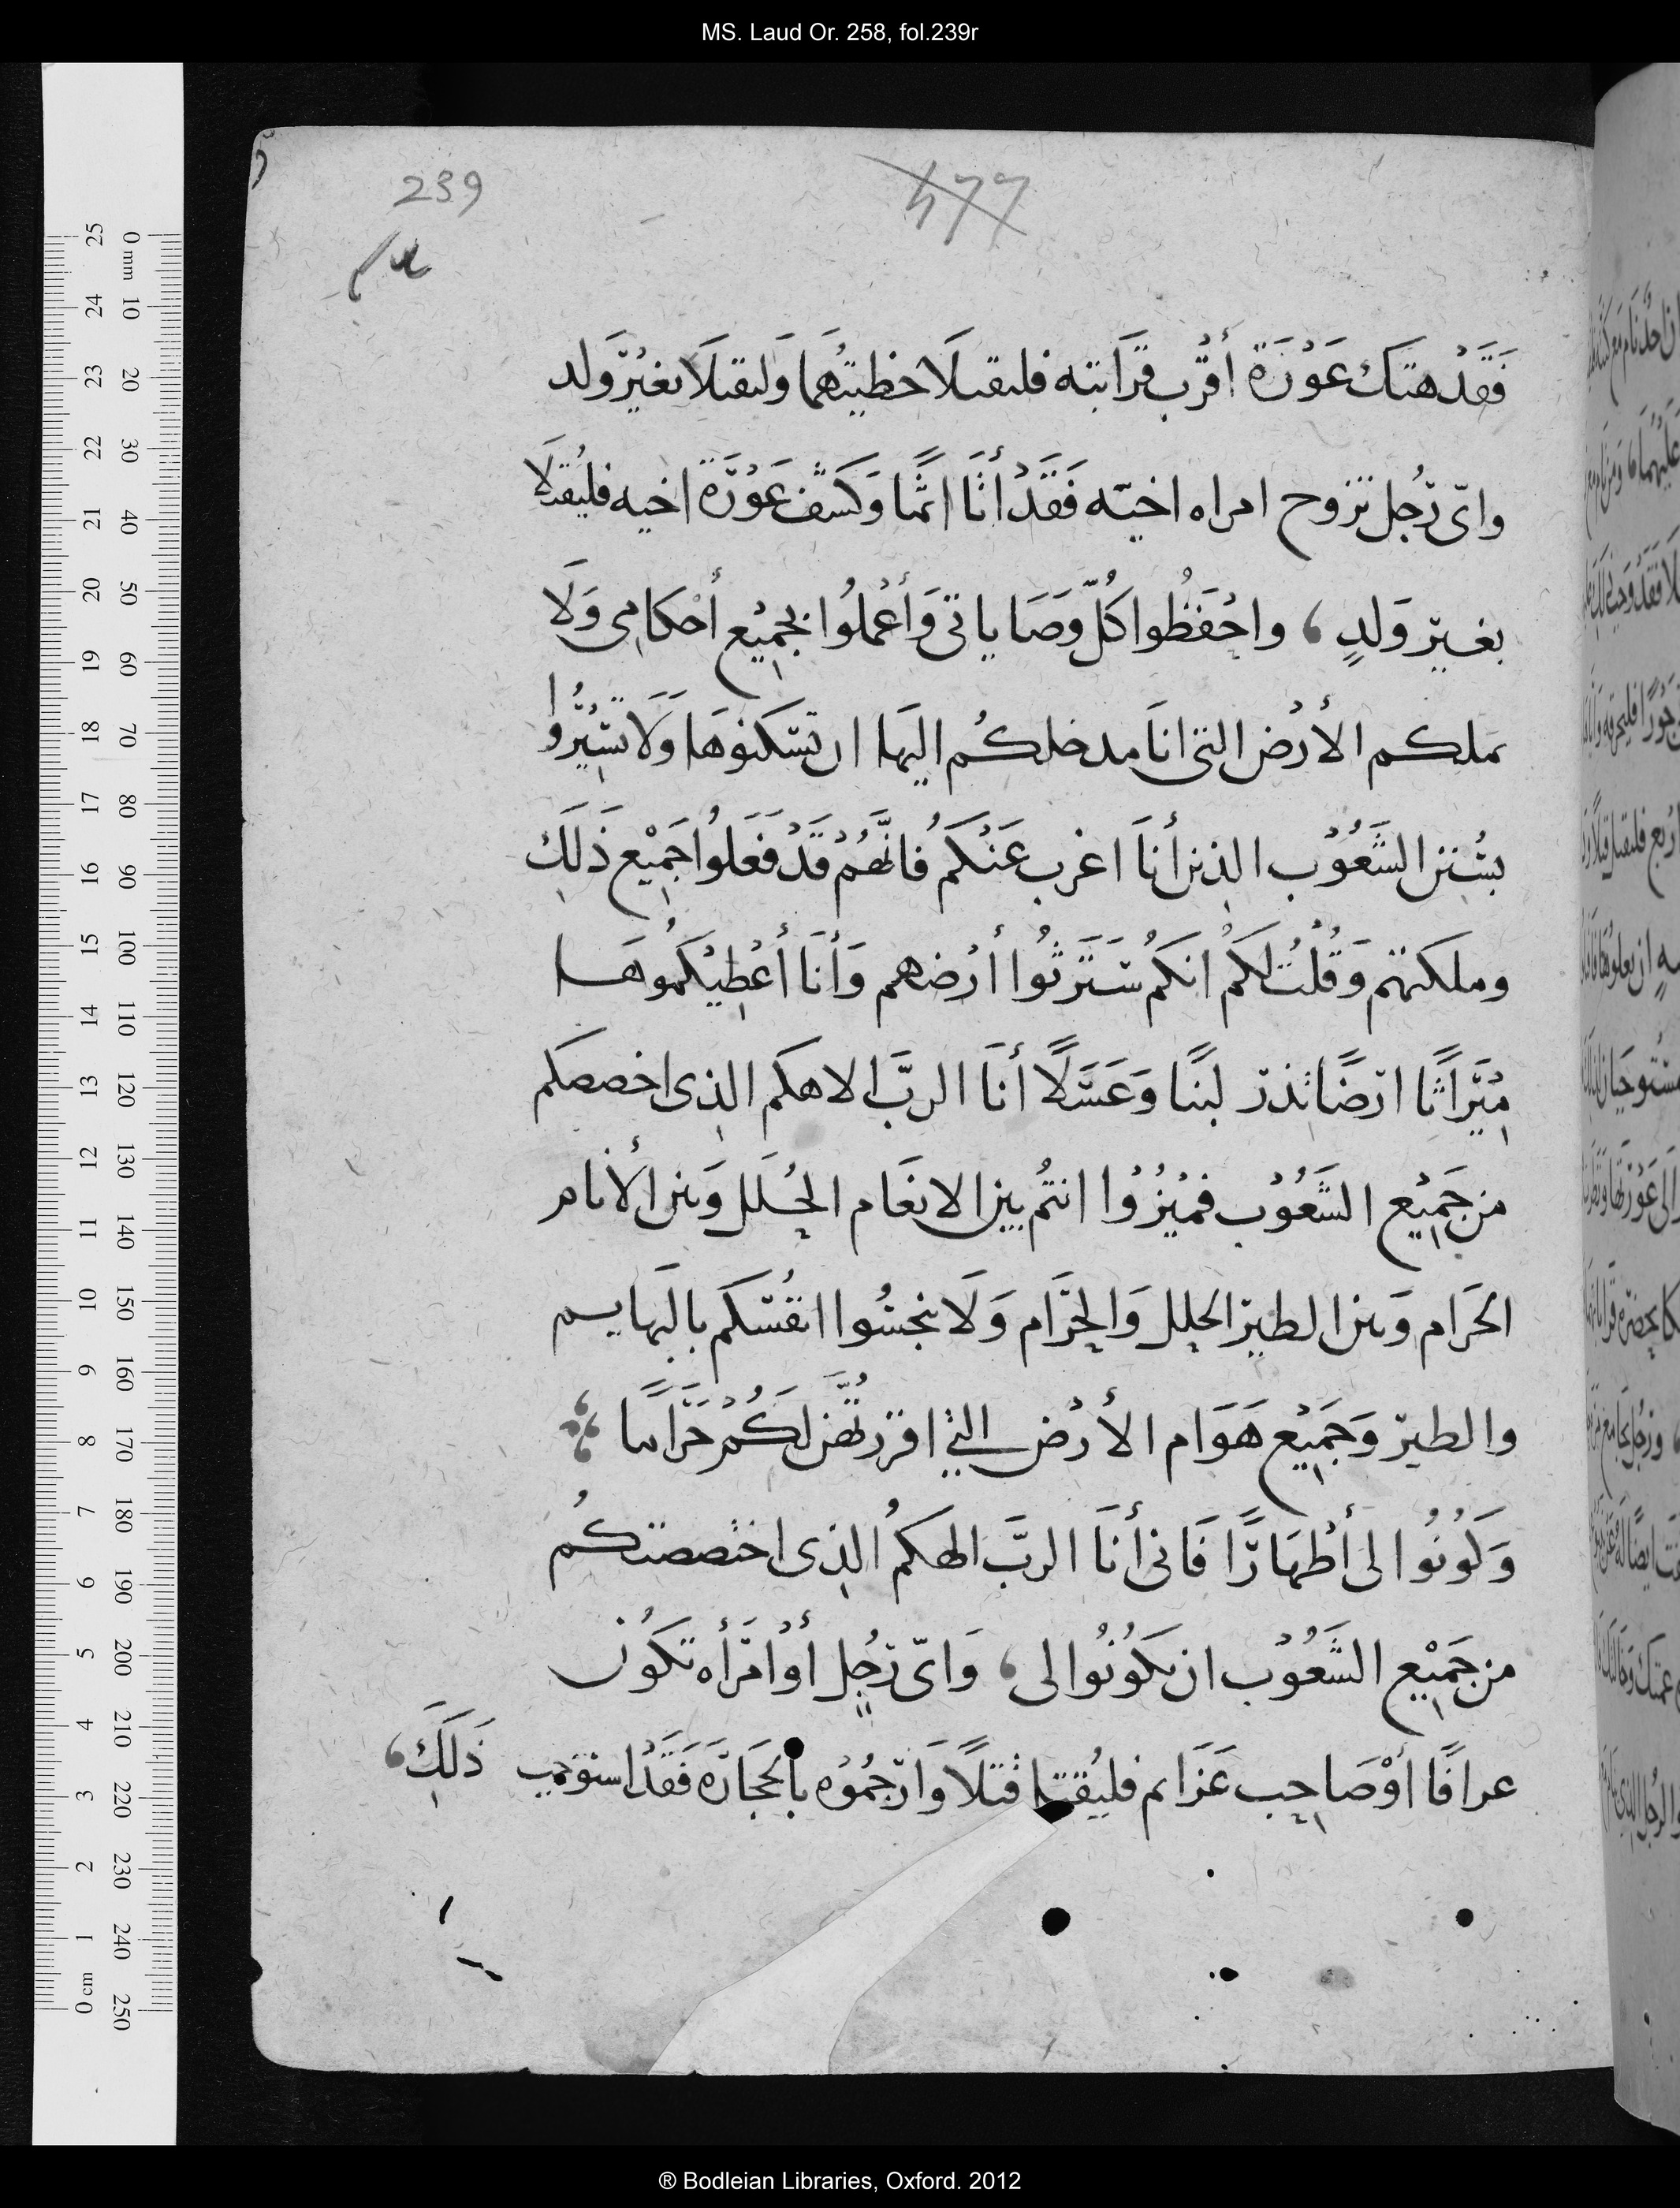 MS. Laud Or. 258, fol.239r
239
477
فَقَدْ هتك عَوْرَة أقْرب قرَابته فليقبلَا خطيتهُمَا وَليقبلَا بغيْر وَلد
واىّ رَجُل تزوج امراه اخيّه فَقَدْ أتَا اثمًا وَكشَف عَوْرَة اخيه فليُقتلَا
بغير وَلدٍ ، واحْفَظُوا كُلّ وَصَاياتى وَأعْملُوا بجميْع أحْكامِى وَلَا
تملكم الأرْض التى انَا مدخلكُم اليهَا ان تسْكنوهَا وَلَا تسِيْرُوا
بسُنن الشَّعُوْب الذين أنَا اغرب عَنْكُم فانّهُمْ قَدْ فَعَلوُا جَمِيْع ذَلَكِ
وملكتهم وَقُلْتُ لكُمْ انكُم سَتَرثُوا أرْضهم وَأنَا أعْطِيْكمُوهَا
مِيْرَاثًا ارْضًا تذر لبنًا وَعَسَلًا أنَا الربَّ الاهكم الذِى اخصصكم
من جَمِيْع الشَّعُوْب فميْزُوْا انتُم بين الانعَام الحُلَل وَبين الأنام
الحَرَام وَبين الطيْر الحلل وَالحَرَام وَلَا تنجسُوا انفُسَكم بالبهَايم
والطيْر وَجَمِيْع هَوَام الأرْض التي افرزتهُن لكُمْ حَرَامًا
وَكُونُوا لى أطْهَارًا فَانى أنَا الربَّ الهكمُ الذِى اختصصتكُم
من جَمِيْع الشَّعُوْب ان تكوُنُوا لى ، وَاىّ رَجُل أوْ امْرَأه تكوُن
عرافًا أوْ صَاحِب عَزَام فليُقتلا قتلًا وَارْجُمُوْه بالحجَارَه فَقَدْ استوْجب ذَلَكِ ،
® Bodleian Libraries, Oxford. 2012